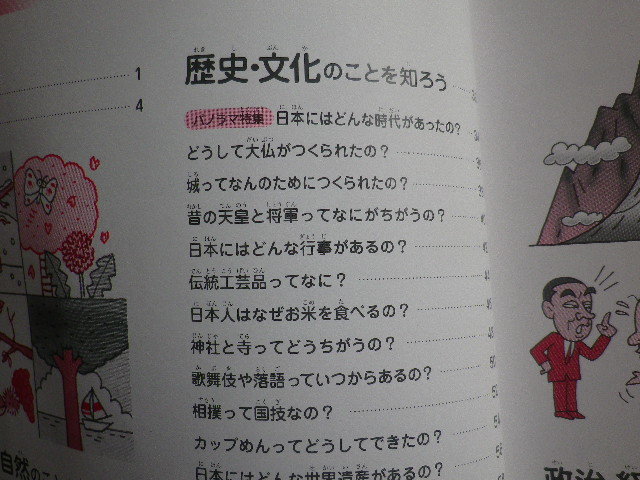 1
4
歴史・文化のことを知ろう
パノラマ特集 日本にはどんな時代があったの?
どうして大仏がつくられたの?
城ってなんのためにつくられたの?
昔の天皇と将軍ってなにがちがうの?
日本にはどんな行事があるの?
伝統工芸品ってなに?
日本人はなぜお米を食べるの?
神社と寺ってどうちがうの?
歌舞伎や落語っていつからあるの?
相撲って国技なの?
カップめんってどうしてできたの?
日本にはどんな世界遺産があるの?
自然のこと
政治